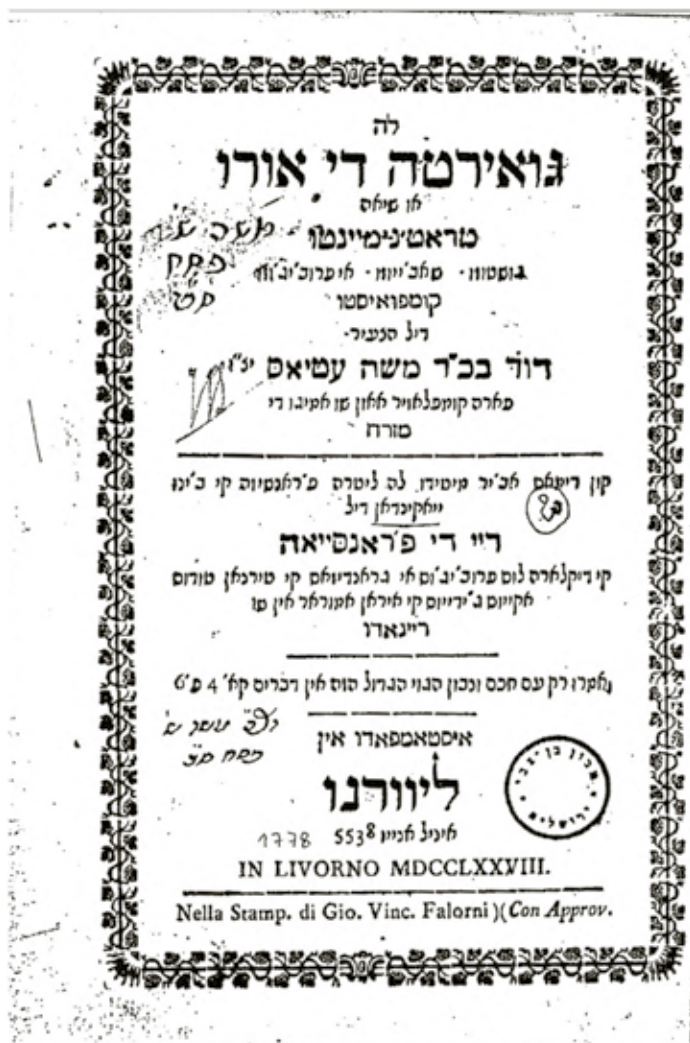 לה
גואירטה די אורו
או שיאה
טראטנימיינטו
קומפואיסטו
דיל הצעיר
דוד בכ"ר משה עטיאס יצ"ו
פארה קומפלאזיר אאון שו אמיגו די
מזרח
קון דימאס אביר מיטידו לה ליטרה פ'ראנסיזה קי ב'ינו
דיל
ריי די פ'ראנסייאה
קי דיקלארה לוס פרוב'יג'וס אי גראנדיזאס קי טירנאן טודוס
אקיוס ג'ידייוס קי איראן אמוראר אין שו
ריינאדו
ואמרו רק עם חכם ונבון הגוי הגדול הזה אין דברים קא' 4 פ'
איסטאמפאדו אין
ליוורנו
1778 איניל אנייו 5538
IN LIVORNO MDCCLXXVIII.
Nella Stamp. di Gio. Vinc. Falorni )( Con Approv.